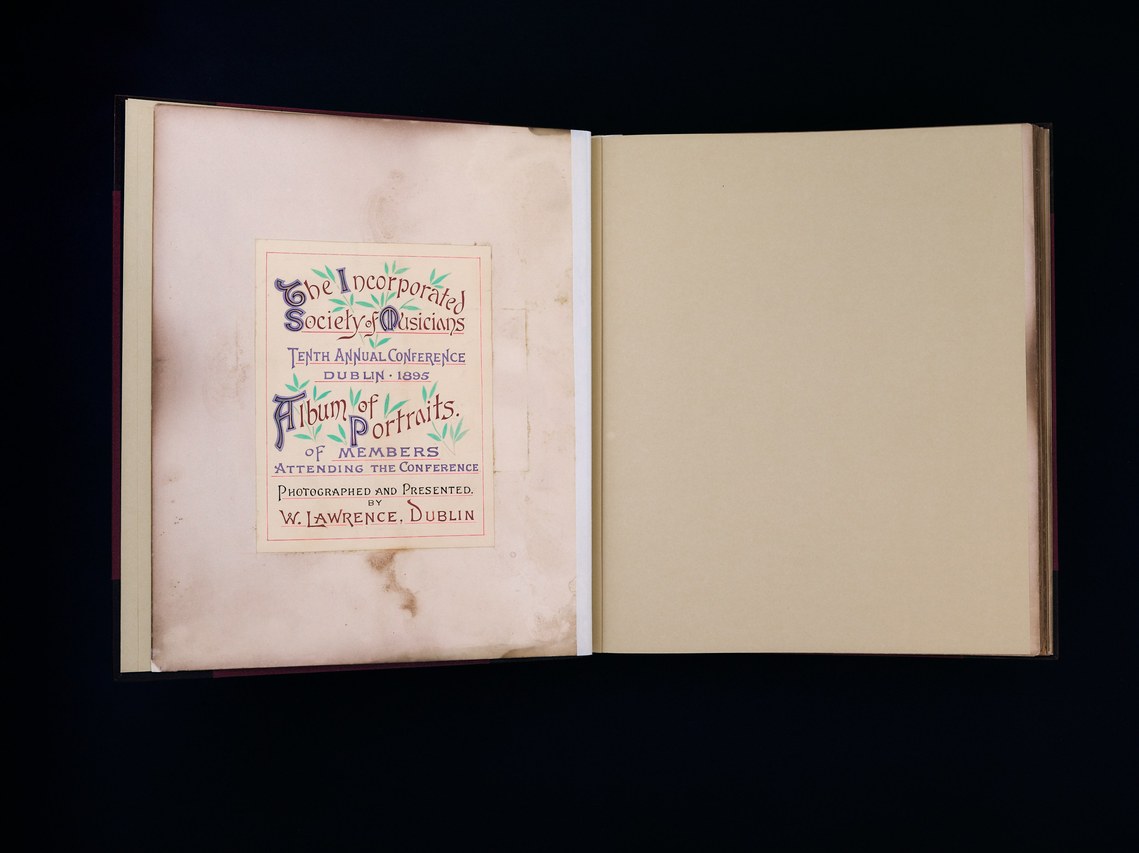 The Incorporated
Society of Musicians
Tenth Annual Conference
Dublin · 1895
Album of
Portraits.
of Members
Attending the Conference
Photographed and Presented,
by
W. Lawrence, Dublin